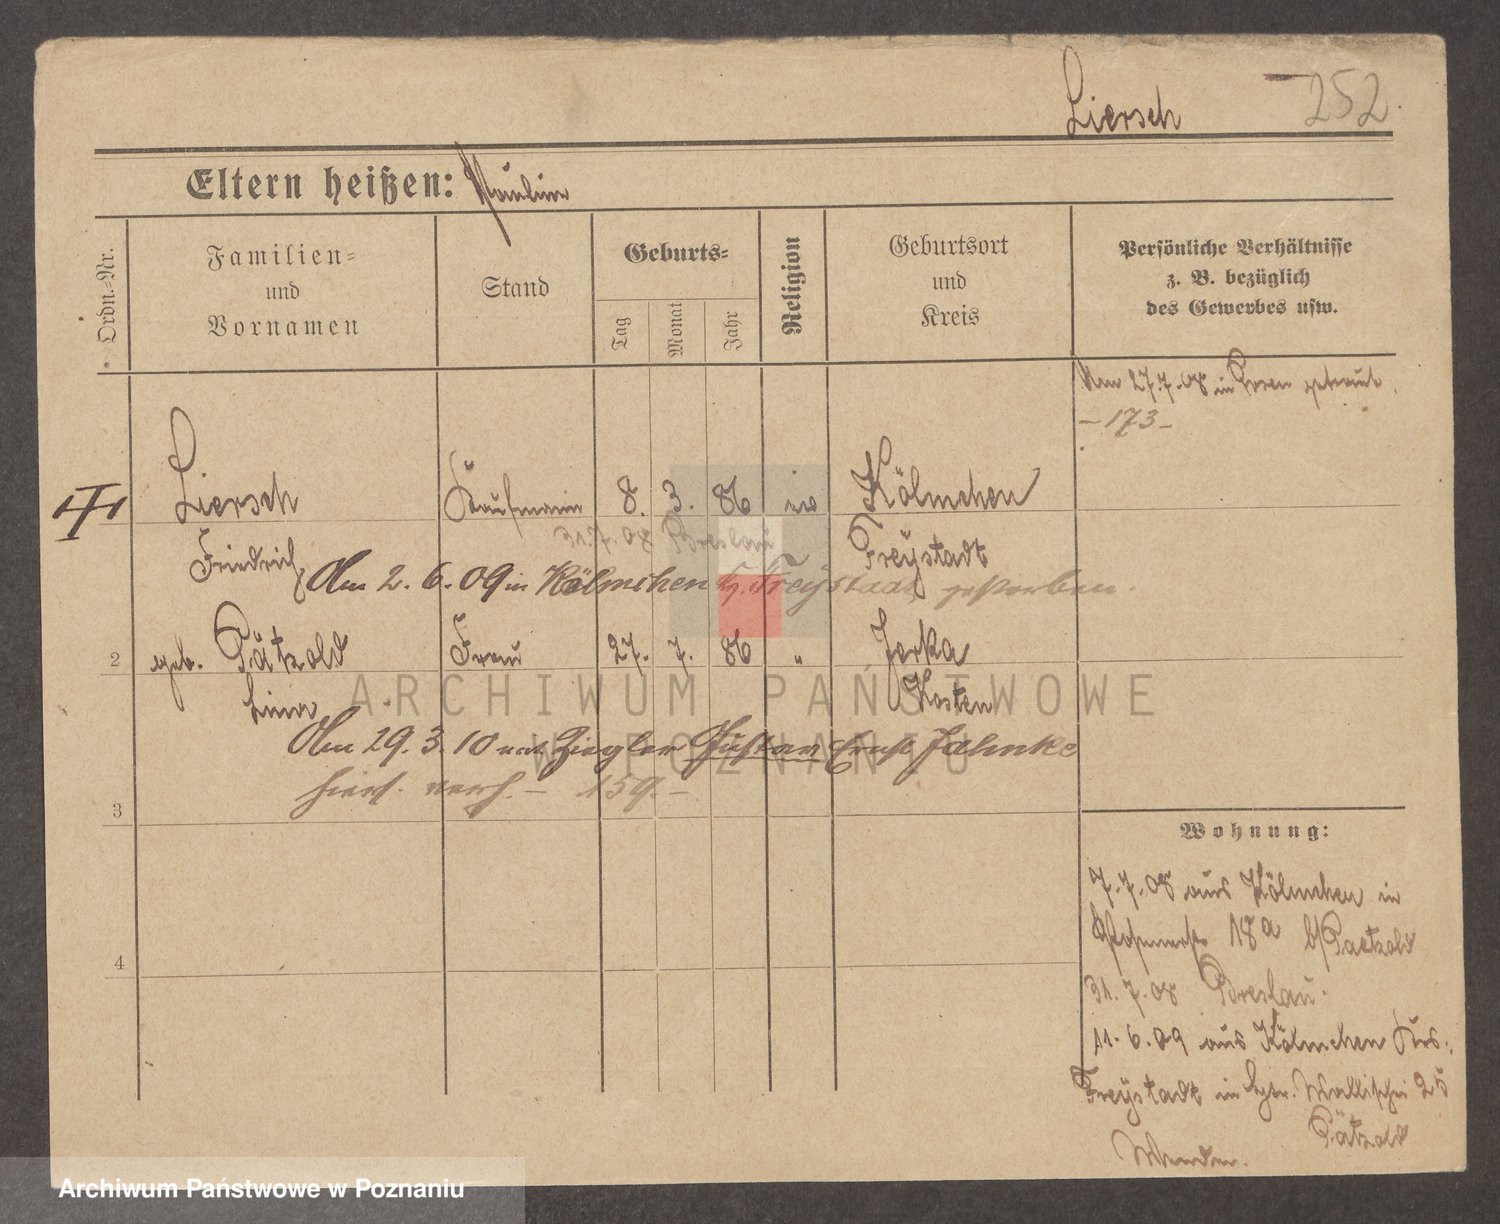 Liersch 252
Eltern heißen: Pauline
Ordn.-Nr.
Familien-
und
Vornamen
Stand
Geburts-
Tag
Monat
Jahr
Religion
Geburtsort
und
Kreis
Persönliche Verhältnisse
z. B. bezüglich
des Gewerbes usw.
Am 27.7.08 in Posen getraut.
- 173 -
Liersch Kaufmann 8. 3. 86 Kölmchen
31.7.08 Breslau
Friedrich Freystadt
Am 2.6.09 in Kölmchen Freystadt gestorben.
2 geb. Pätzold Frau 27. 7. 86 " Jarka
Kosten
Am 29.3.10 mit Ziegler Gustav Ernst Jahnke
hier verh. - 159. -
3
4
Wohnung:
7.7.08 aus Kölmchen in
18a b/ Paetzold
31.7.08 Breslau.
11.6.09 aus Kölmchen Krs.
Freystadt in Wallischei 25
Pätzold
ARCHIWUM PAŃSTWOWE
W POZNANIU
Archiwum Państwowe w Poznaniu